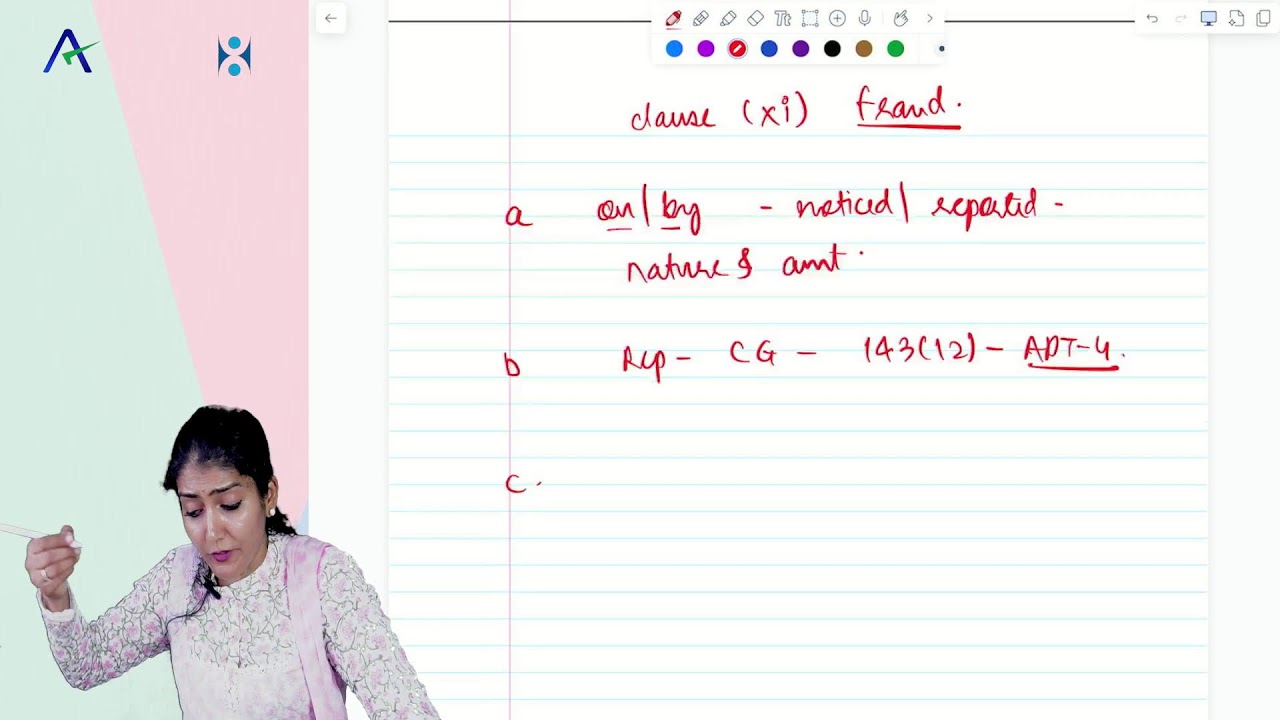 clause (xi) fraud.
a on/by - noticed/ reported -
nature & amt.
b Rep - CG - 143(12) - ADT-4.
c.